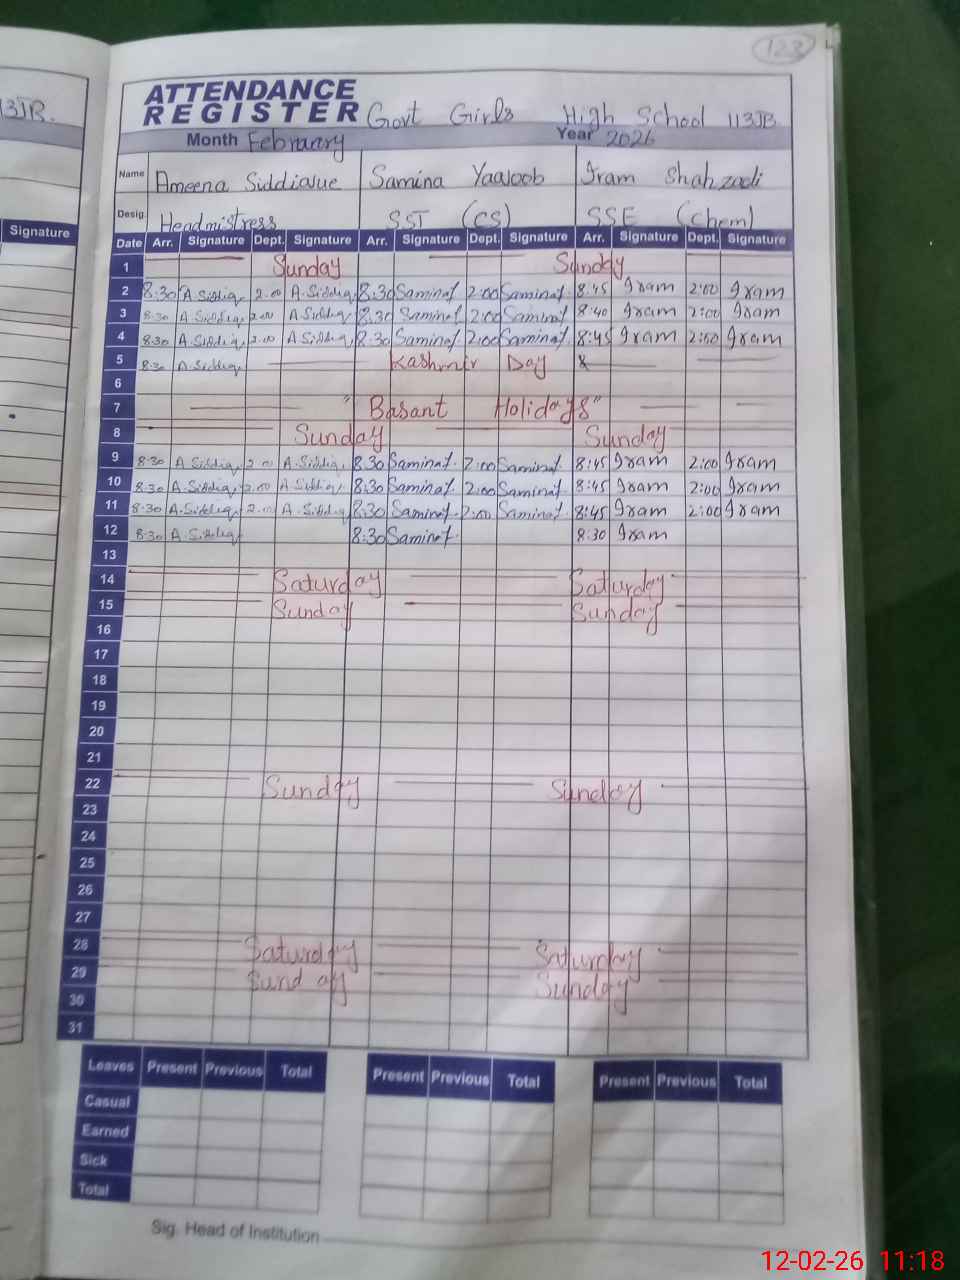 123
113JB.
ATTENDANCE
REGISTER Govt Girls High School 113JB
Month February Year 2026
Name Ameena Siddiaue Samina Yaaoob Iram Shahzadi
Desig. Headmistress SST (CS) SSE (Chem)
Signature
Date Arr. Signature Dept. Signature Arr. Signature Dept. Signature Arr. Signature Dept. Signature
1 Sunday Sunday
2 8:30 A.Siddiq 2.00 A.Siddiq 8:30 Saminaf 2:00 Saminaf 8:45 Iram 2:00 Iram
3 8:30 A.Siddiq 2.00 A.Siddiq 8:30 Saminaf 2:00 Saminaf 8:40 Iram 2:00 Iram
4 8:30 A.Siddiq 2.00 A.Siddiq 8:30 Saminaf 2:00 Saminaf. 8:45 Iram 2:00 Iram
5 8:30 A.Siddiq Kashmir Day
6
7 "Basant Holidays"
8 Sunday Sunday
9 8:30 A.Siddiq 2.00 A.Siddiq 8:30 Saminaf. 2:00 Saminaf. 8:45 Iram 2:00 Iram
10 8:30 A.Siddiq 2.00 A.Siddiq 8:30 Saminaf. 2:00 Saminaf. 8:45 Iram 2:00 Iram
11 8:30 A.Siddiq 2.00 A.Siddiq 8:30 Saminaf. 2:00 Saminaf. 8:45 Iram 2:00 Iram
12 8:30 A.Siddiq 8:30 Saminaf. 8:30 Iram
13
14 Saturday Saturday
15 Sunday Sunday
16
17
18
19
20
21
22 Sunday Sunday
23
24
25
26
27
28 Saturday Saturday
29 Sunday Sunday
30
31
Leaves Present Previous Total Present Previous Total Present Previous Total
Casual
Earned
Sick
Total
Sig. Head of Institution
12-02-26 11:18